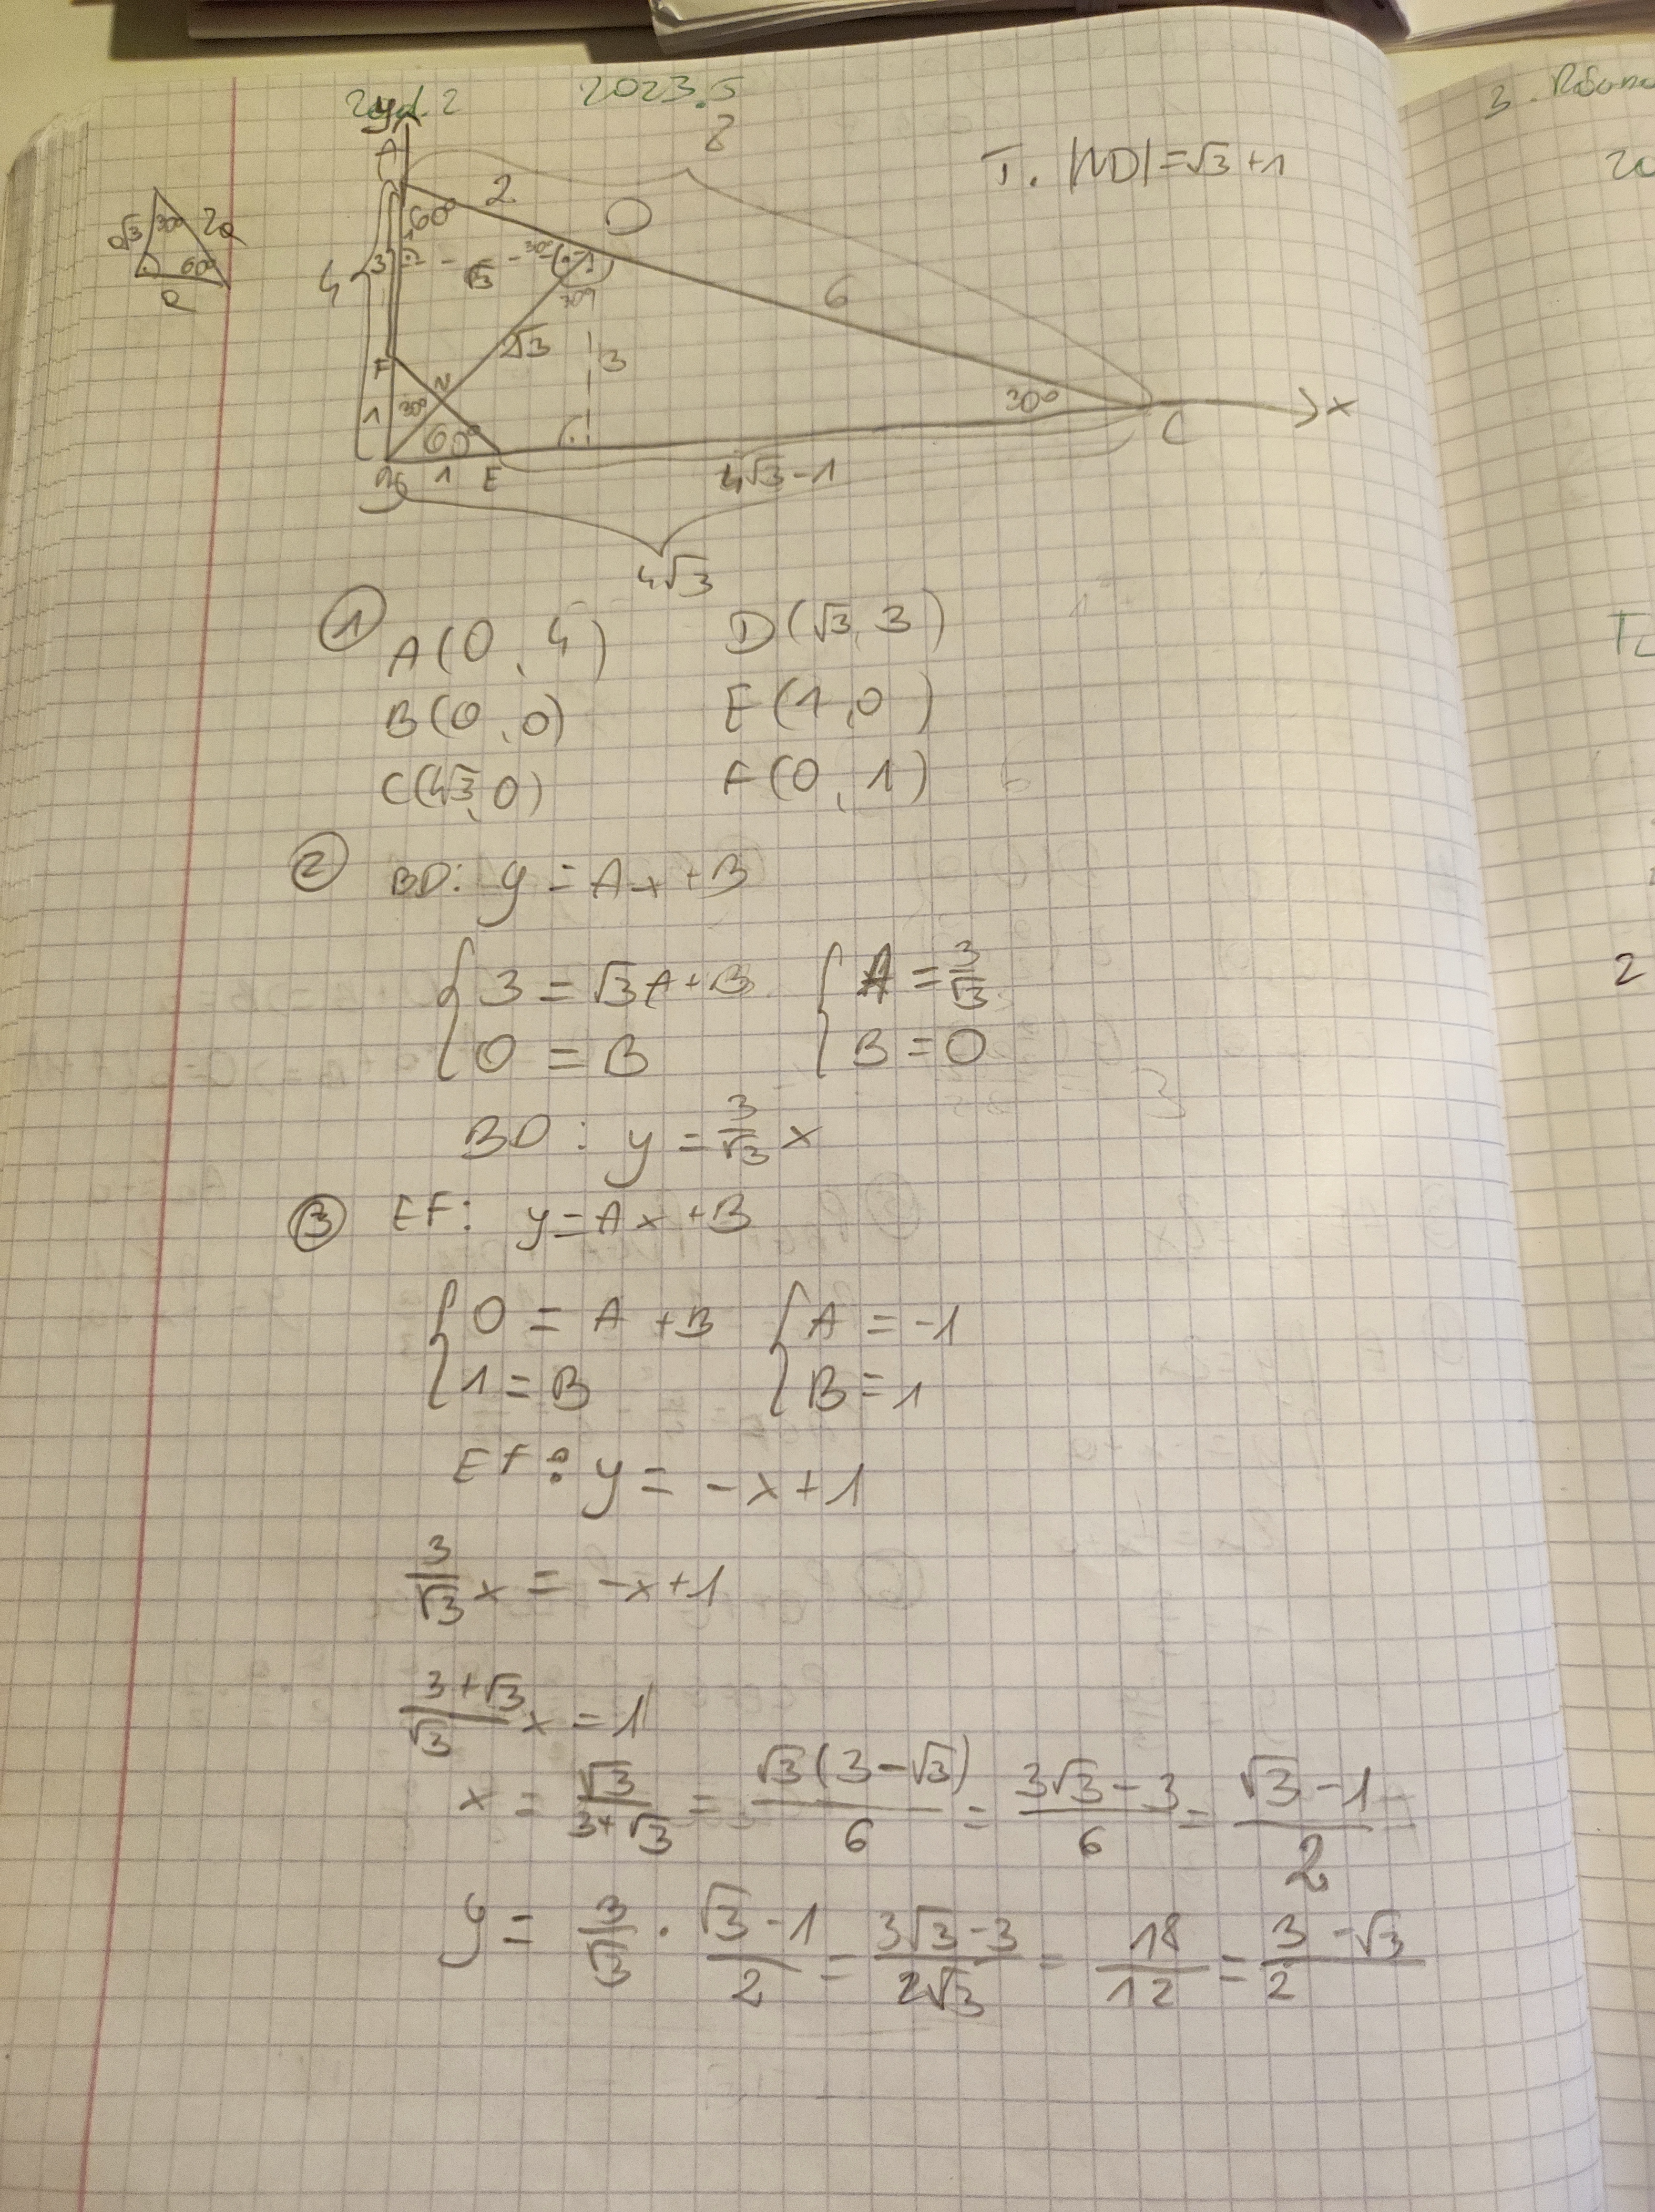 Zad. 2 2023.5
y
A
8
T. |ND| = √3 + 1
2
60°
D
a√3 30° 2a
60°
a
4
3
30°
√3
30°
6
2√3
3
F
N
1
30°
60°
30°
C
x
B 1 E
4√3 - 1
4√3
① A(0, 4) D(√3, 3)
B(0, 0) E(1, 0)
C(4√3, 0) F(0, 1)
② BD: y = Ax + B
{ 3 = √3A + B { A = 3/√3
{ 0 = B { B = 0
BD : y = 3/√3 x
③ EF: y = Ax + B
{ 0 = A + B { A = -1
{ 1 = B { B = 1
EF : y = -x + 1
3/√3 x = -x + 1
(3 + √3)/√3 x = 1
x = √3/(3 + √3) = √3(3 - √3)/6 = (3√3 - 3)/6 = (√3 - 1)/2
y = 3/√3 · (√3 - 1)/2 = (3√3 - 3)/(2√3) = 18/12 = (3 - √3)/2
3.
2